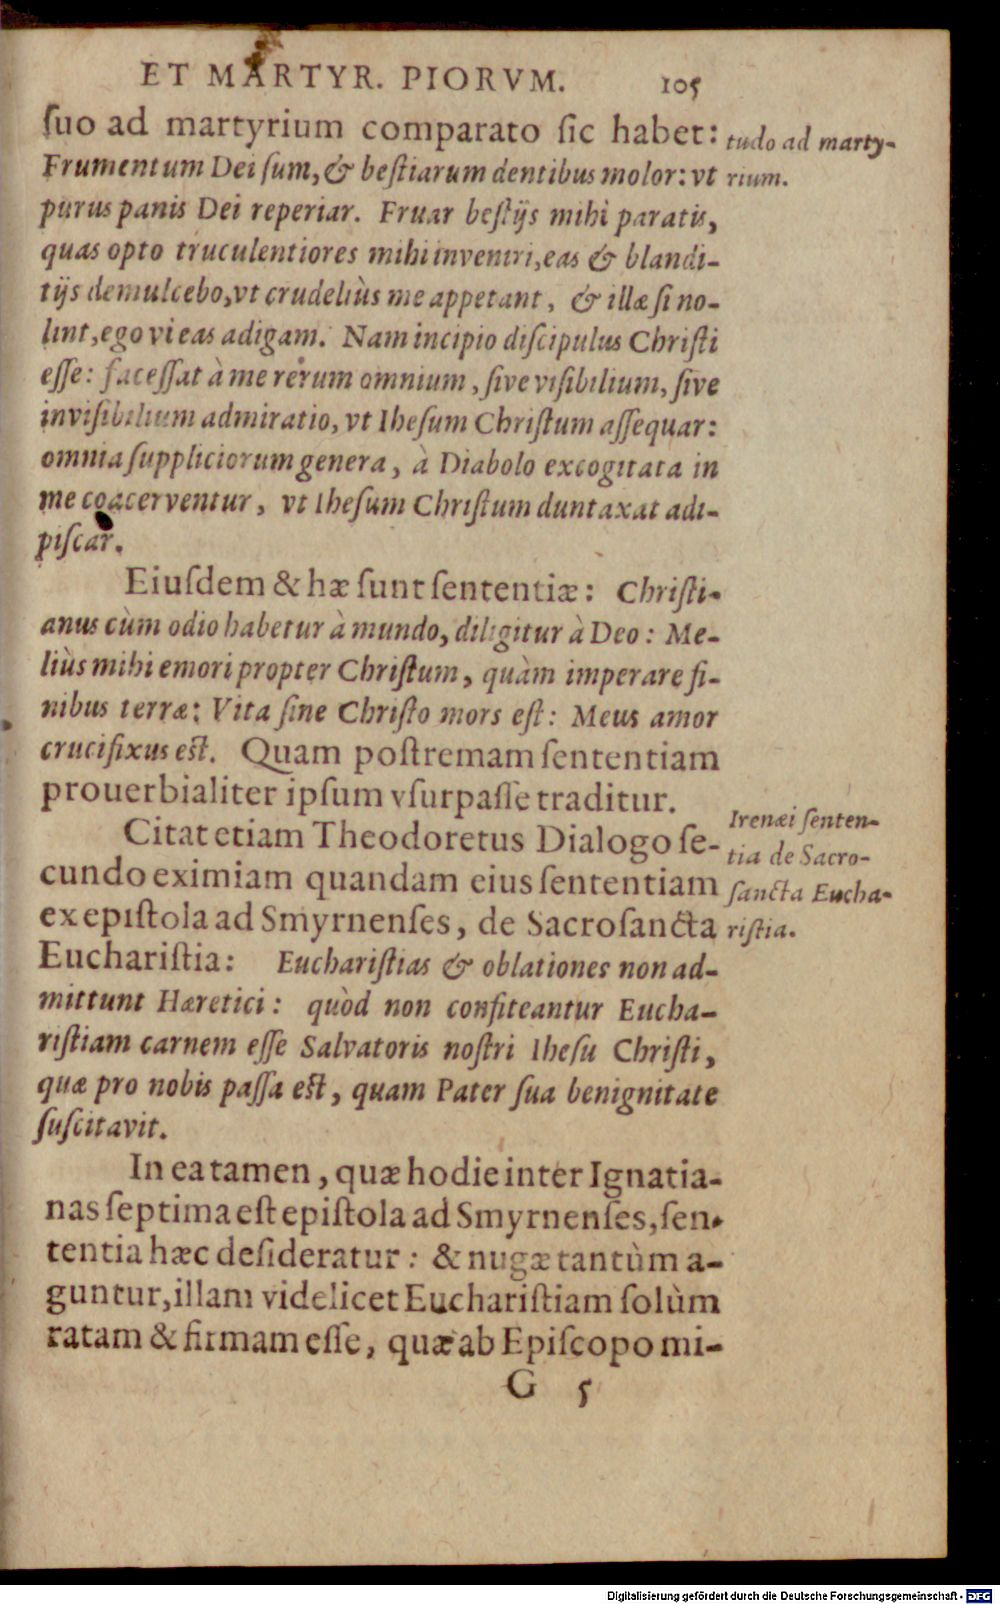 ET MARTYR. PIORVM. 105
ſuo ad martyrium comparato ſic habet:
tudo ad marty-
Frumentum Dei ſum, & beſtiarum dentibus molor: vt
rium.
purus panis Dei reperiar. Fruar beſtijs mihi paratis,
quas opto truculentiores mihi inveniri, eas & blandi-
tijs demulcebo, vt crudeliùs me appetant, & illæ ſi no-
lint, ego vi eas adigam. Nam incipio diſcipulus Chriſti
eſſe: faceſſat à me rerum omnium, ſive viſibilium, ſive
inviſibilium admiratio, vt Iheſum Chriſtum aſſequar:
omnia ſuppliciorum genera, à Diabolo excogitata in
me coacerventur, vt Iheſum Chriſtum duntaxat adi-
piſcar.
Eiuſdem & hæ ſunt ſententiæ: Chriſti-
anus cùm odio habetur à mundo, diligitur à Deo: Me-
liùs mihi emori propter Chriſtum, quàm imperare fi-
nibus terræ: Vita ſine Chriſto mors eſt: Meus amor
crucifixus eſt. Quam poſtremam ſententiam
prouerbialiter ipſum vſurpaſſe traditur.
Citat etiam Theodoretus Dialogo ſe-
cundo eximiam quandam eius ſententiam
ex epiſtola ad Smyrnenſes, de Sacroſancta
Euchariſtia: Euchariſtias & oblationes non ad-
Irenæi ſenten-
tia de Sacro-
ſancta Eucha-
riſtia.
mittunt Hæretici: quòd non confiteantur Eucha-
riſtiam carnem eſſe Salvatoris noſtri Iheſu Chriſti,
quæ pro nobis paſſa eſt, quam Pater ſua benignitate
ſuſcitavit.
In ea tamen, quæ hodie inter Ignatia-
nas ſeptima eſt epiſtola ad Smyrnenſes, ſen-
tentia hæc deſideratur: & nugæ tantùm a-
guntur, illam videlicet Euchariſtiam ſolùm
ratam & firmam eſſe, quæ ab Epiſcopo mi-
G 5
Digitalisierung gefördert durch die Deutsche Forschungsgemeinschaft - DFG